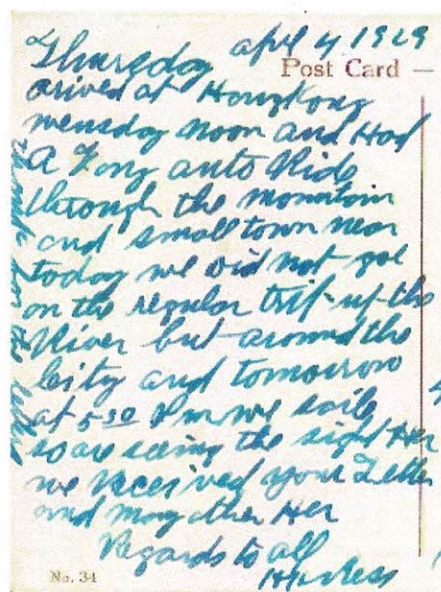 Thursday april 4 1929
Post Card
arived at Hongkong
wensday noon and Had
A Long auto Ride
through the mountain
and small town near
today we did not goe
on the regular trip-up the
River but around the
City and tomorrow
at 5 30 Pm we saile
so are seeing the sight Her
we Received your Letter
and may other Her
Regards to all
No. 34